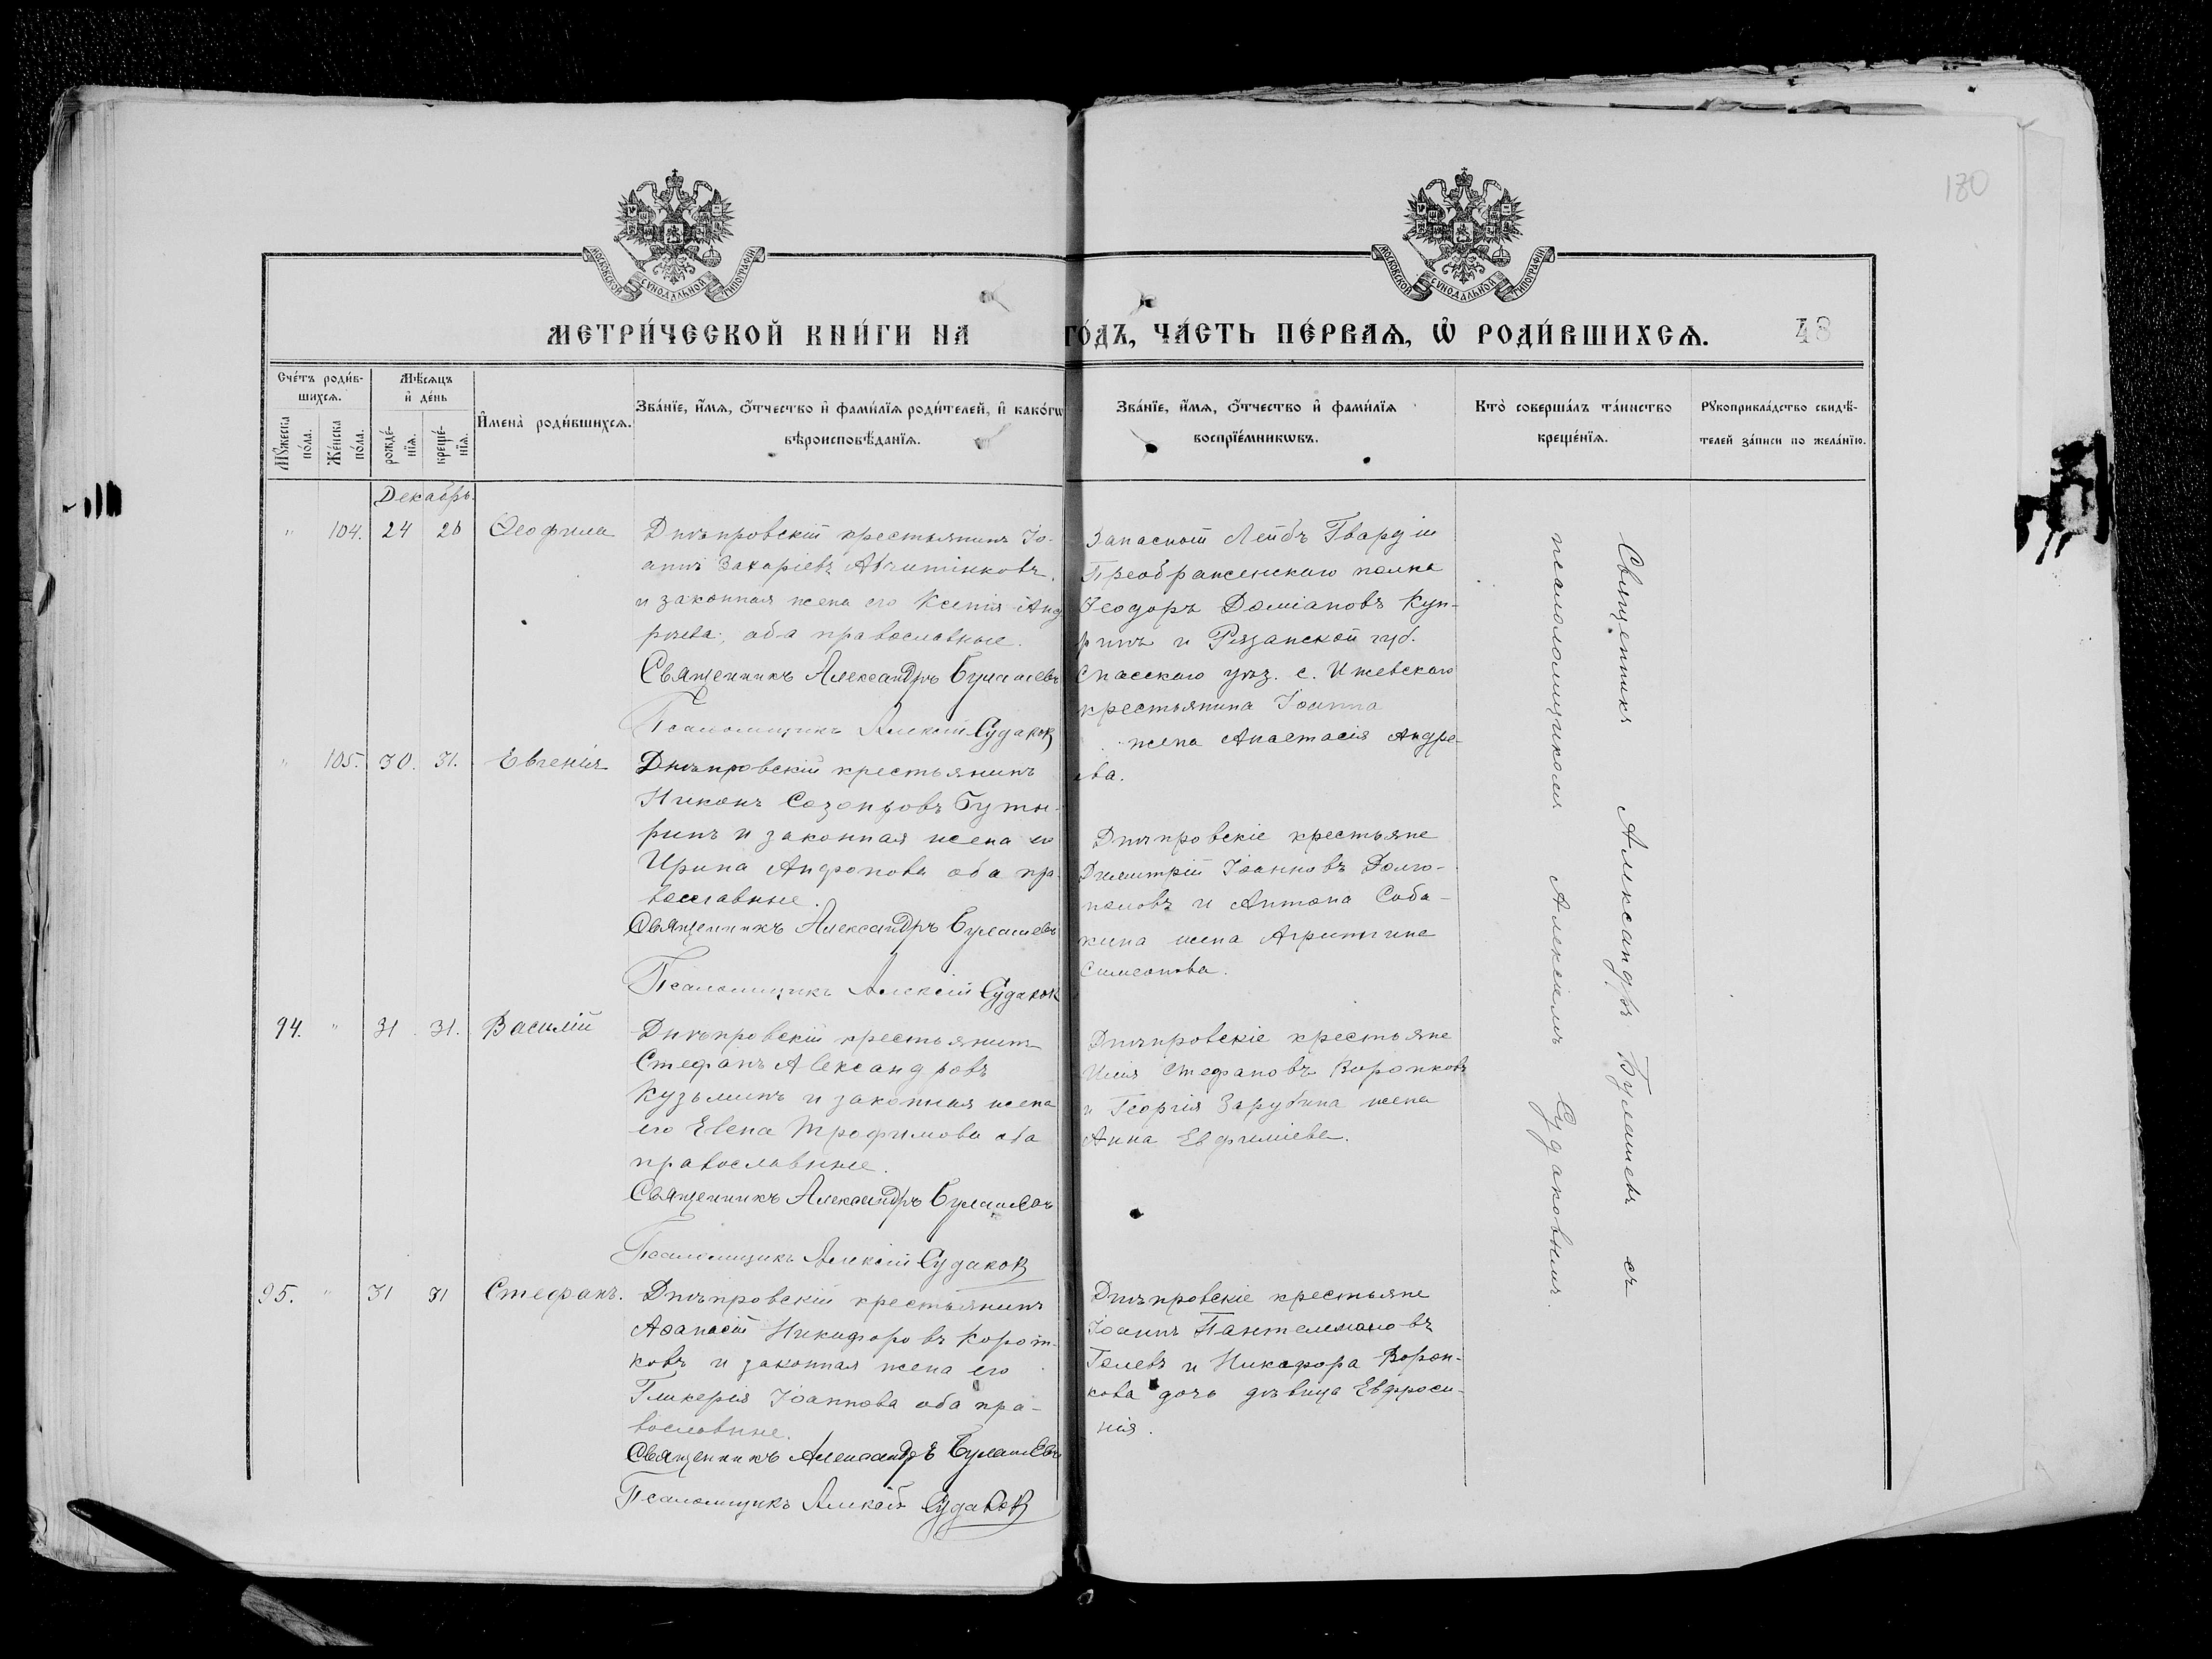 180
МОСКОВСКОЙ СУНОДАЛЬНОЙ ТИПОГРАФІИ
МОСКОВСКОЙ СУНОДАЛЬНОЙ ТИПОГРАФІИ
МЕТРИ́ЧЕСКОЙ КНИ́ГИ НА
ГО́ДЪ, ЧА́СТЬ ПЕ́РВАѦ, Ѽ РОДИ́ВШИХСѦ.
48
Сче́тъ роди́в-
шихсѧ.
Мꙋ́жеска по́ла.
Же́нска по́ла.
Мѣ́сѧцъ
и҆ де́нь
рожде́-
нїѧ.
креще́-
нїѧ.
И҆мена̀ роди́вшихсѧ.
Зва́нїе, и҆́мѧ, ѻ҆́тчество и҆ фами́лїѧ роди́телей, и҆ како́гѡ
вѣроисповѣ́данїѧ.
Зва́нїе, и҆́мѧ, ѻ҆́тчество и҆ фами́лїѧ
воспрїе́мникѡвъ.
Кто̀ соверша́лъ та́инство
креще́нїѧ.
Рꙋкоприкла́дство свидѣ́-
телей за́писи по жела́нїю.
Декабрь.
" 104. 24 26 Ѳеофила
Днѣпровскій крестьянинъ Іо-
аннъ Захаріевъ
и законная жена его Ксенія Анд
реева, оба православные.
Священникъ Александръ Булашевъ
Псаломщикъ Алексій Судаков
Запасной Лейбъ Гвардіи
Преображенскаго полка
Ѳеодоръ Доміановъ Куп-
ринъ и Рязанской губ.
Спасскаго уѣз. с. Ижевскаго
крестьянина Іоанна
жена Анастасія Андре-
ева.
" 105. 30. 31. Евгенія
Днѣпровскій крестьянинъ
Никонъ Созонтовъ Буты-
ринъ и законная жена его
Ирина Андронова оба пр-
вославные.
Священникъ Александръ Булашевъ
Псаломщикъ Алексій Судаков
Днѣпровскіе крестьяне
Димитрій Іоанновъ Долго-
половъ и Антона Соба-
кина жена Агрипина
Симеонова.
94. " 31 31. Василій
Днѣпровскій крестьянинъ
Стефанъ Александровъ
Кузьминъ и законная жена
его Елена Трофимова оба
православные.
Священникъ Александръ Булашевъ
Псаломщикъ Алексій Судаков
Днѣпровскіе крестьяне
Илія Стефановъ Воронковъ
и Георгія Зарубина жена
Анна Евфиміева.
95. " 31 31 Стефанъ.
Днѣпровскій крестьянинъ
Аѳанасій Никифоровъ Корот-
ковъ и законная жена его
Гликерія Іоаннова оба пра-
вославные.
Священникъ Александръ Булашевъ
Псаломщикъ Алексій Судаков
Днѣпровскіе крестьяне
Іоаннъ Пантелеимоновъ
Голевъ и Никифора Ворон-
кова дочь дѣвица Евфроси-
нія.
Священникъ Александръ Булашевъ съ
псаломщикомъ Алексіемъ Судаковымъ.